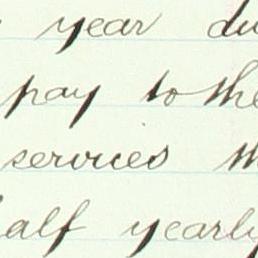 year du
pay to the
services th
half yearly